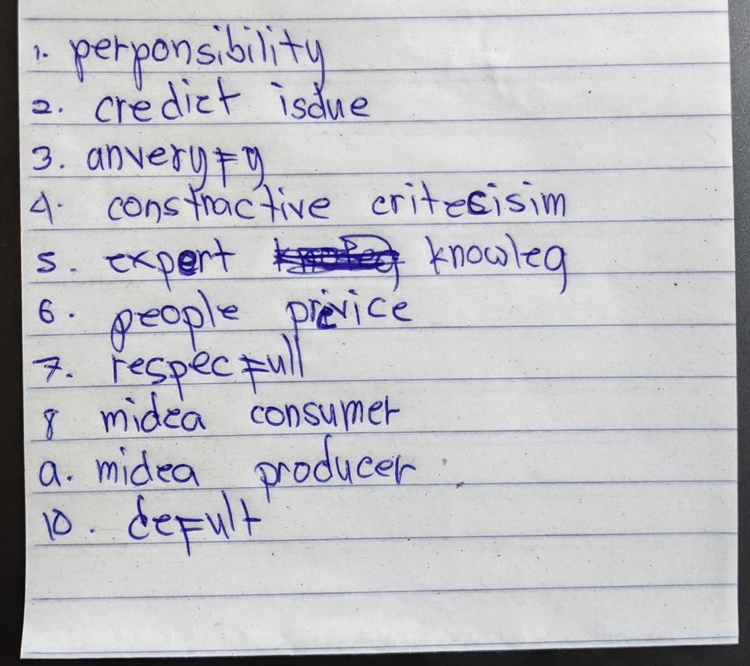 1. perponsibility
2. credict isdue
3. anveryfy
4. constractive critesisim
5. expert knowleg
6. people privice
7. respecfull
8 midea consumer
9. midea producer
10. defult